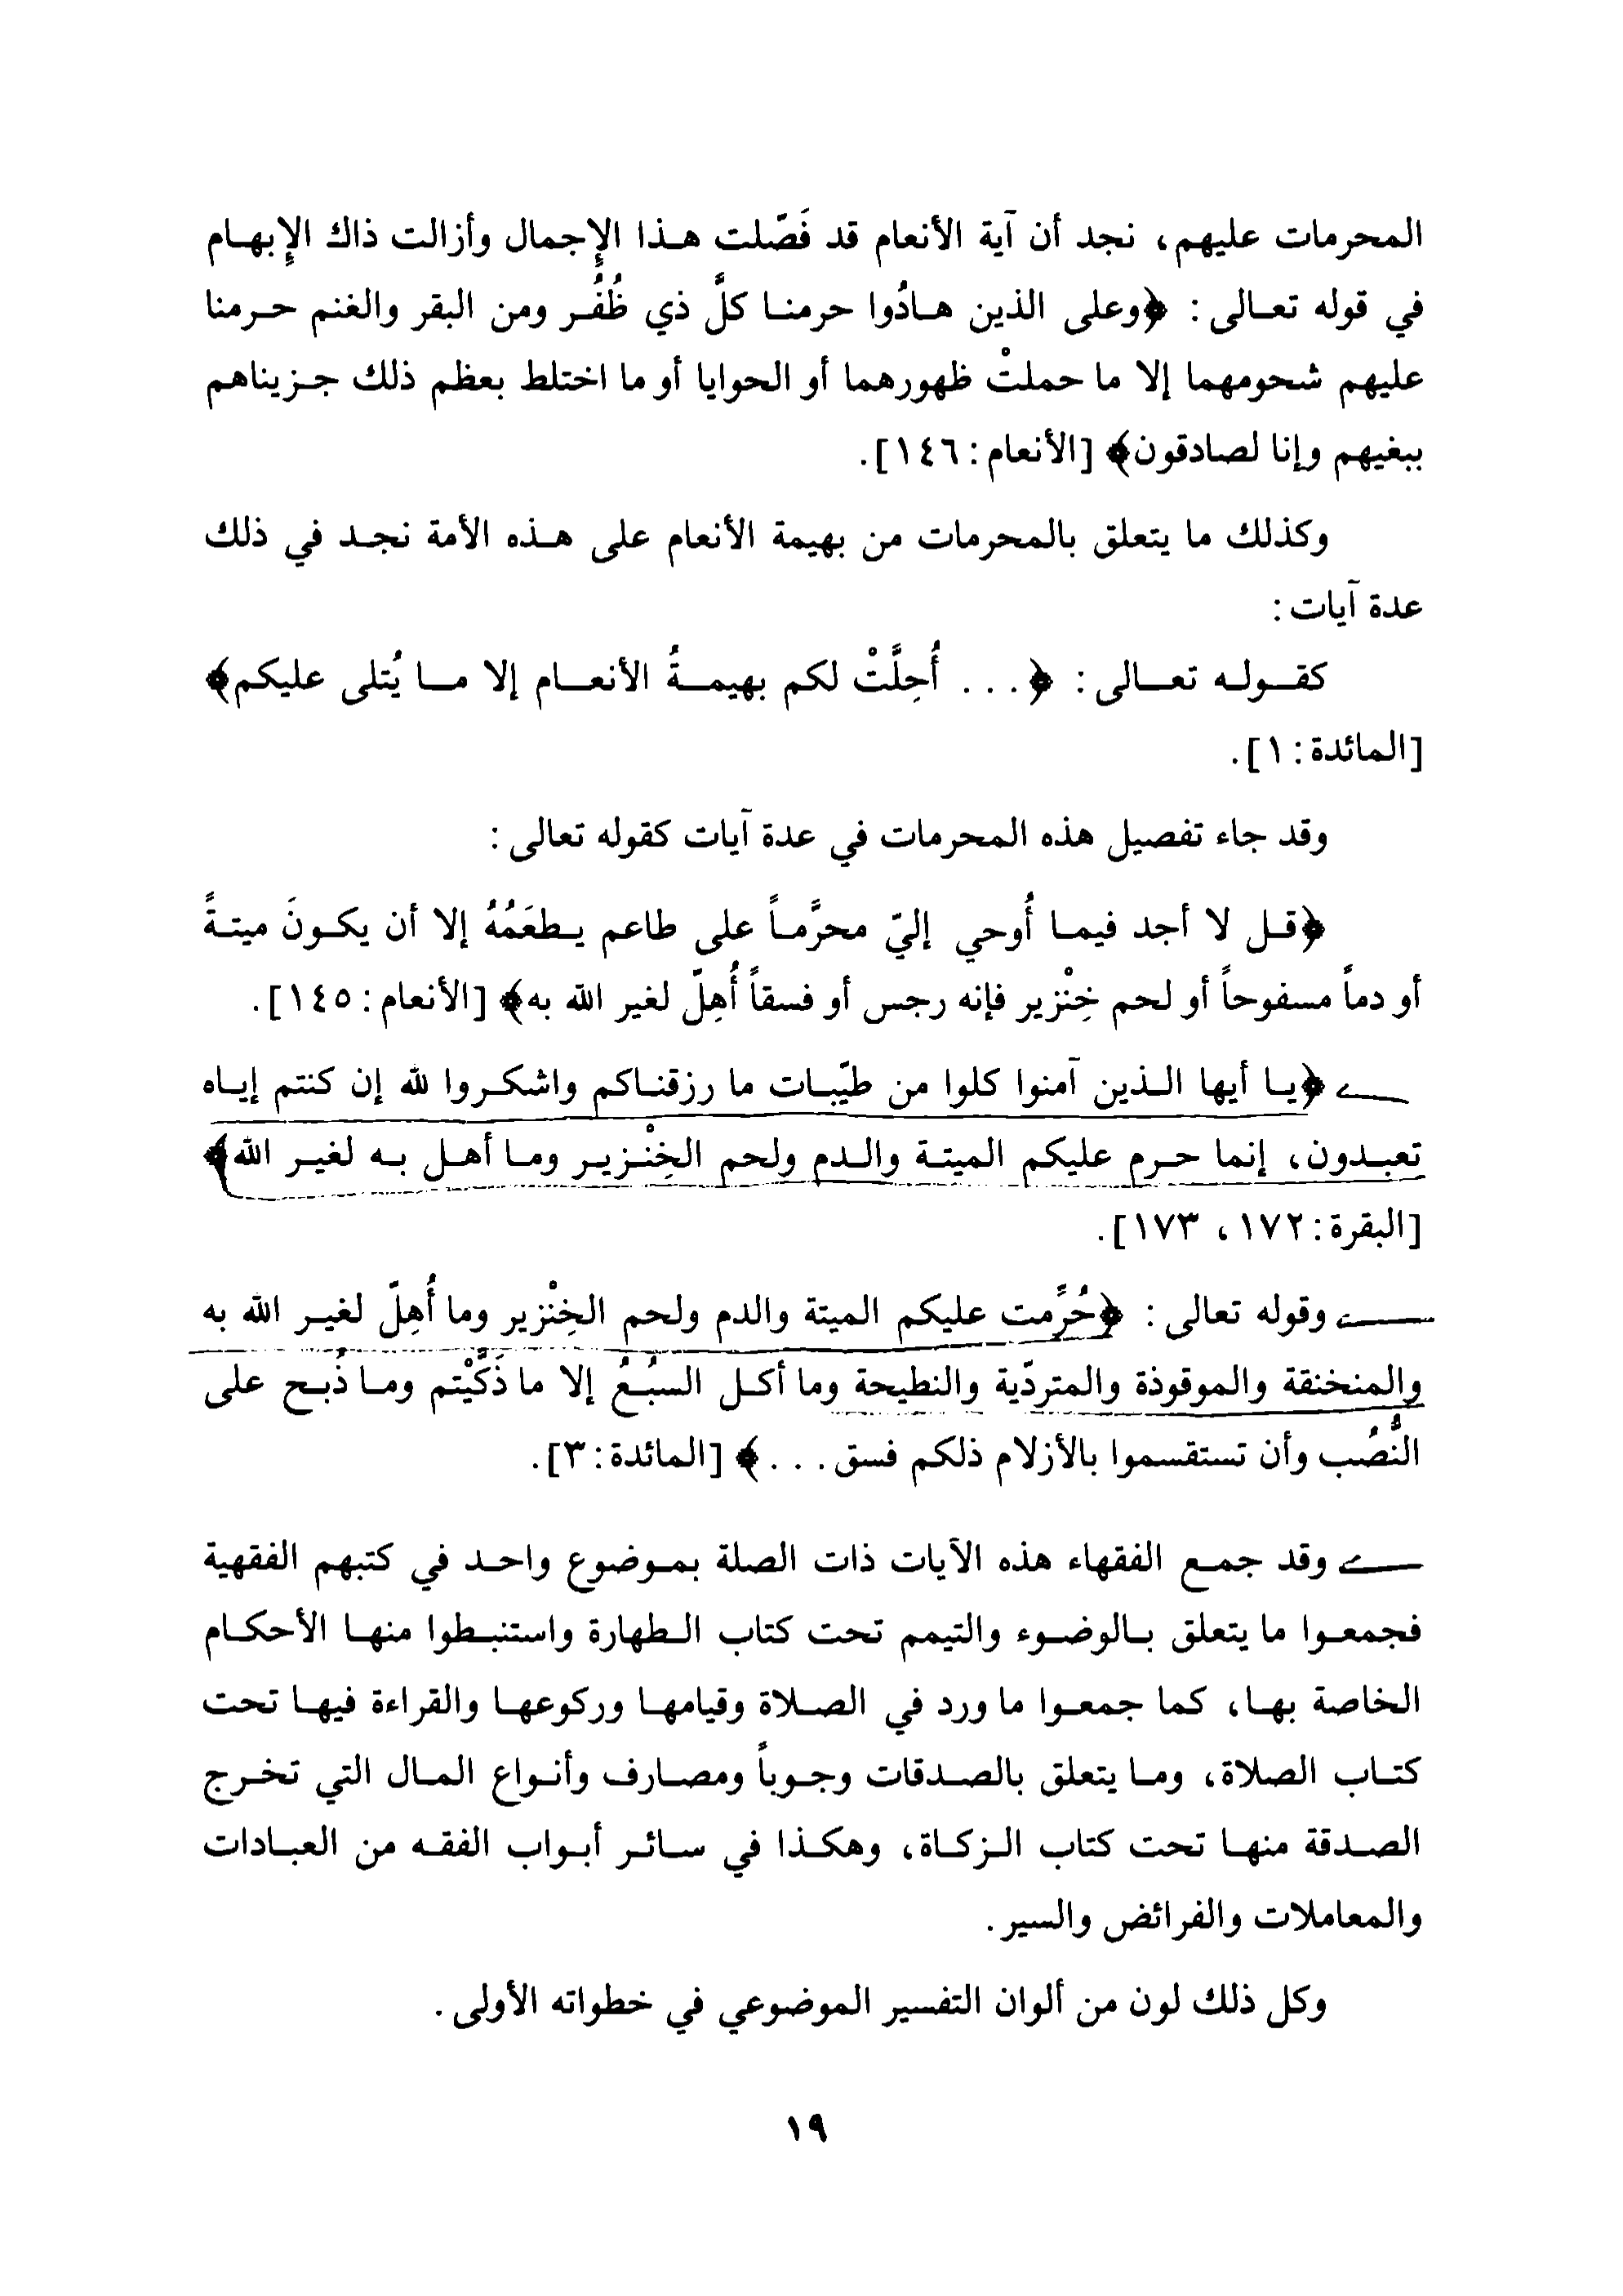 المحرمات عليهم، نجد أن آية الأنعام قد فَصّلت هذا الإِجمال وأزالت ذاك الإِبهام
في قوله تعالى: ﴿وعلى الذين هادُوا حرمنا كلَّ ذي ظُفُر ومن البقر والغنم حرمنا
عليهم شحومهما إلا ما حملتْ ظهورهما أو الحوايا أو ما اختلط بعظم ذلك جزيناهم
ببغيهم وإنا لصادقون﴾ [الأنعام: ١٤٦].
وكذلك ما يتعلق بالمحرمات من بهيمة الأنعام على هذه الأمة نجد في ذلك
عدة آيات:
كقوله تعالى: ﴿... أُحِلَّتْ لكم بهيمةُ الأنعام إلا ما يُتلى عليكم﴾
[المائدة: ١].
وقد جاء تفصيل هذه المحرمات في عدة آيات كقوله تعالى:
﴿قل لا أجد فيما أُوحي إليّ محرَّماً على طاعم يطعَمُهُ إلا أن يكونَ ميتةً
أو دماً مسفوحاً أو لحم خِنْزير فإنه رجس أو فسقاً أُهِلّ لغير الله به﴾ [الأنعام: ١٤٥].
﴿يا أيها الذين آمنوا كلوا من طيّبات ما رزقناكم واشكروا لله إن كنتم إياه
تعبدون، إنما حرم عليكم الميتة والدم ولحم الخِنْزير وما أهل به لغير الله﴾
[البقرة: ١٧٢، ١٧٣].
وقوله تعالى: ﴿حُرِّمت عليكم الميتة والدم ولحم الخِنْزير وما أُهِلّ لغير الله به
والمنخنقة والموقوذة والمتردّية والنطيحة وما أكل السبُعُ إلا ما ذَكَّيْتم وما ذُبح على
النُّصُب وأن تستقسموا بالأزلام ذلكم فسق...﴾ [المائدة: ٣].
وقد جمع الفقهاء هذه الآيات ذات الصلة بموضوع واحد في كتبهم الفقهية
فجمعوا ما يتعلق بالوضوء والتيمم تحت كتاب الطهارة واستنبطوا منها الأحكام
الخاصة بها، كما جمعوا ما ورد في الصلاة وقيامها وركوعها والقراءة فيها تحت
كتاب الصلاة، وما يتعلق بالصدقات وجوباً ومصارف وأنواع المال التي تخرج
الصدقة منها تحت كتاب الزكاة، وهكذا في سائر أبواب الفقه من العبادات
والمعاملات والفرائض والسير.
وكل ذلك لون من ألوان التفسير الموضوعي في خطواته الأولى.
١٩